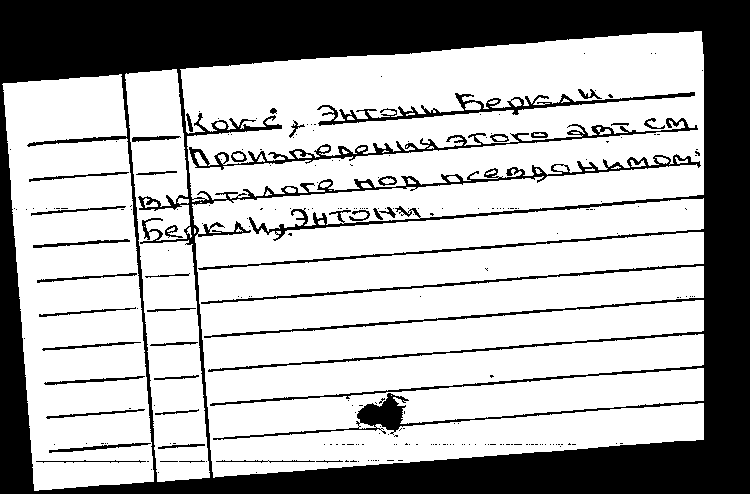 Кокс, Энтони Беркли.
Произведения этого авт. см.
в каталоге под псевдонимом:
Беркли, Энтони.